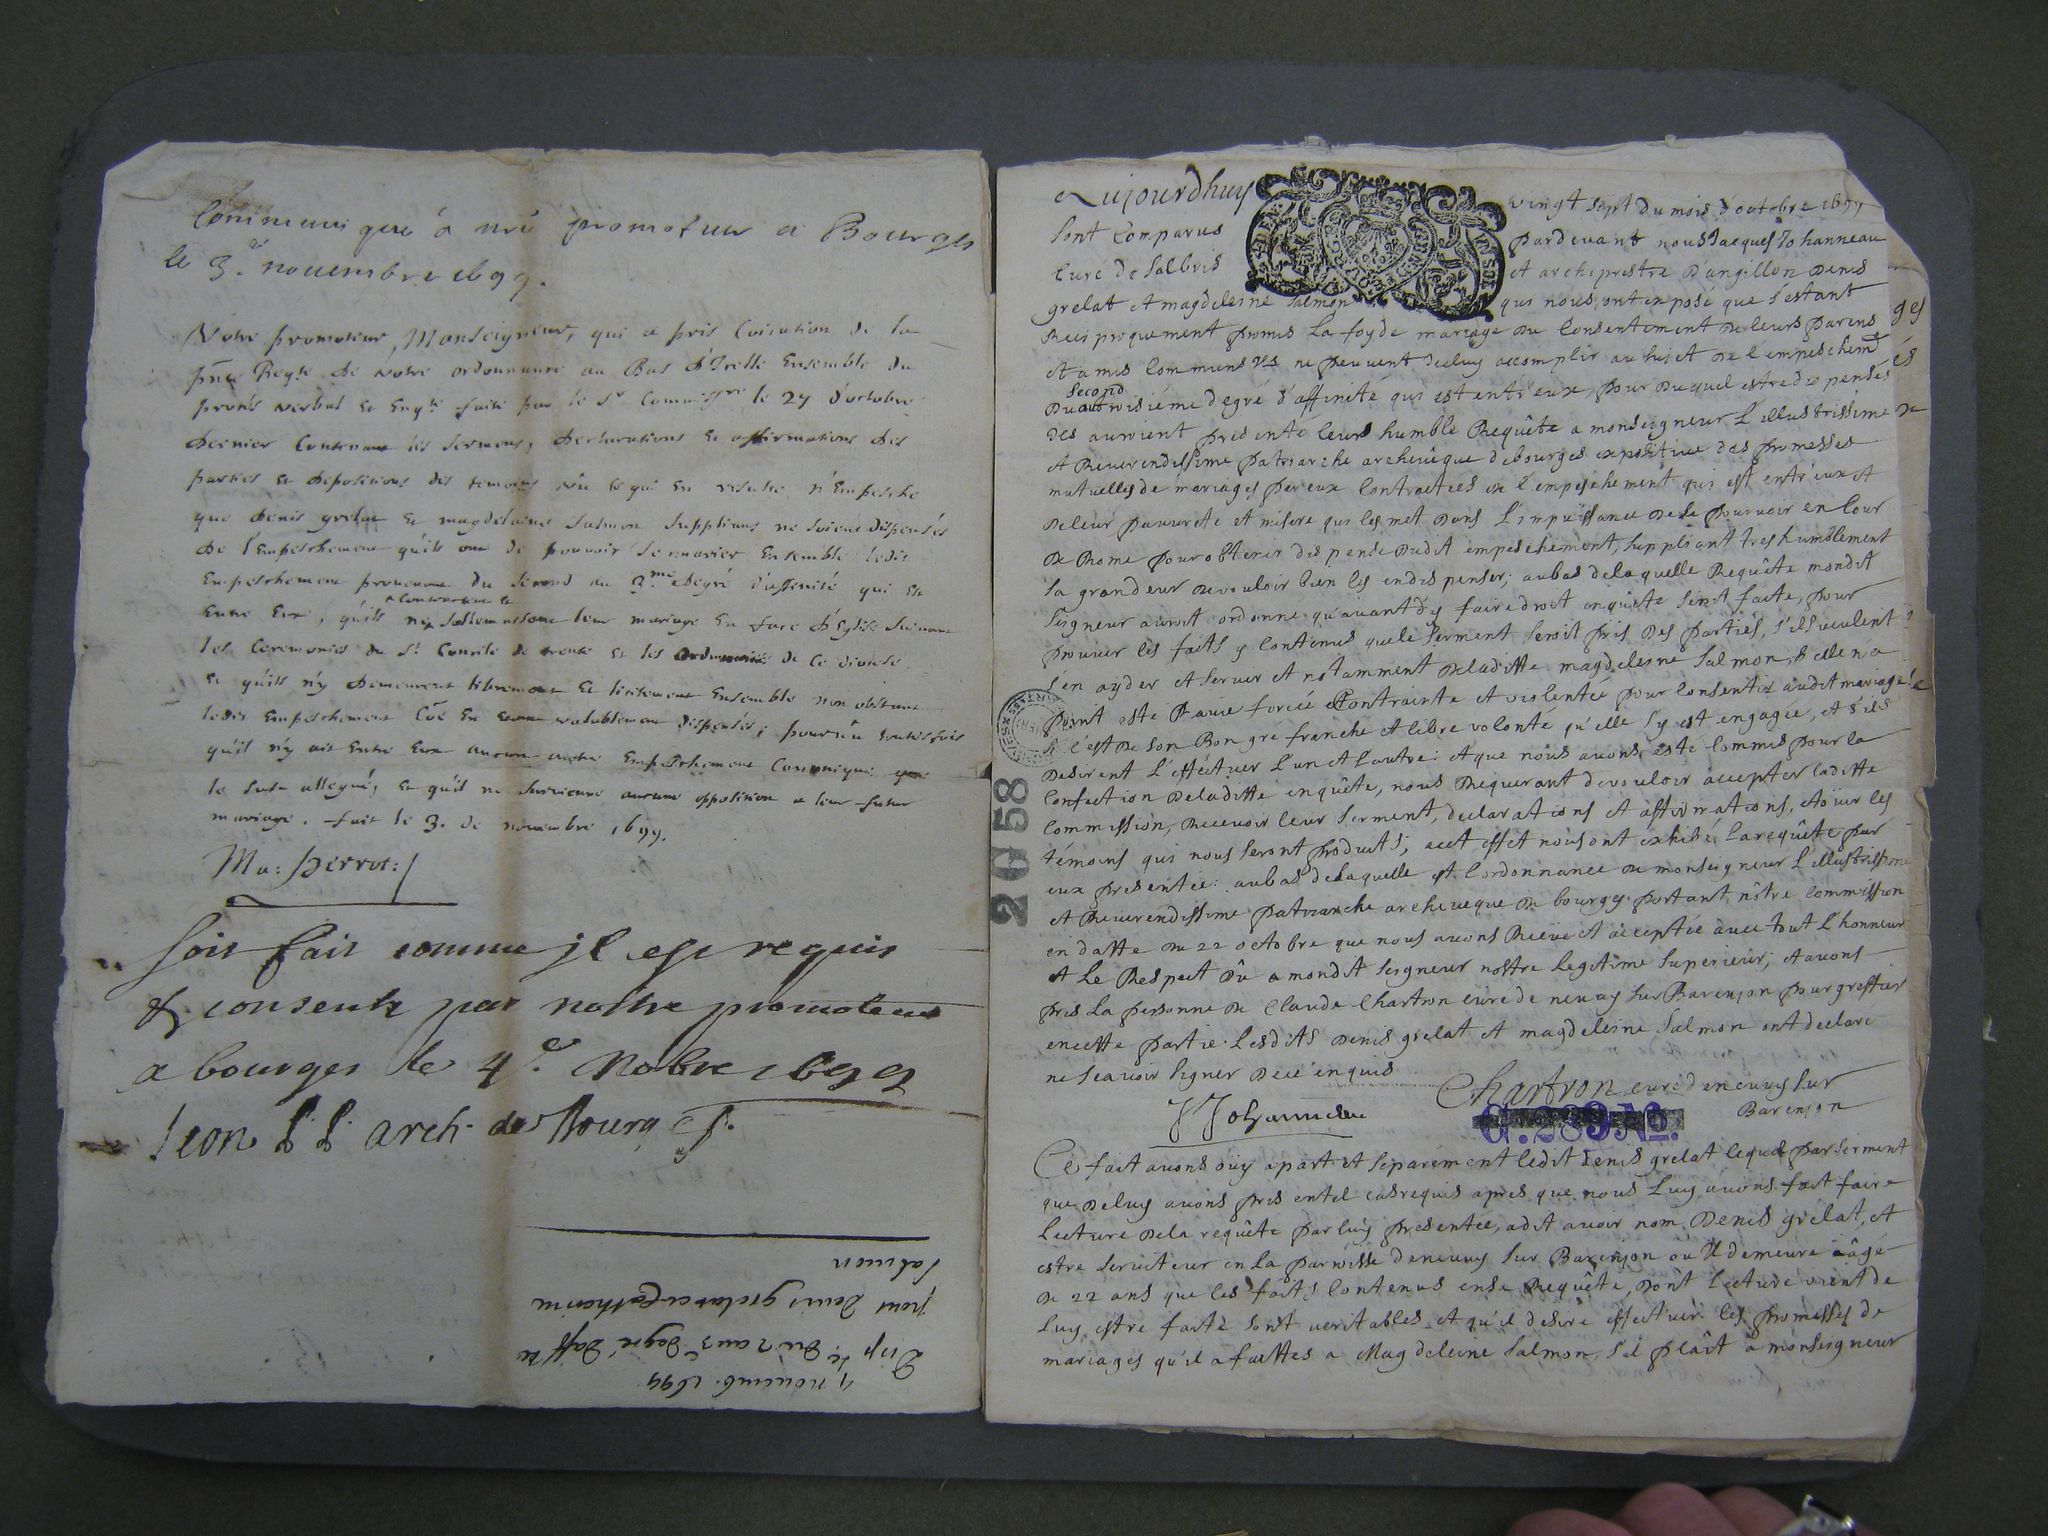 Communiqué à nre promoteur a Bourges
le 3.e nouembre 1699.
Votre promoteur, Monseigneur, qui a pris Coication de la
pnte Reqte de votre ordonnance au Bas d'Icelle Ensemble du
procés verbal Et Enqte faite par le Sr Commissre le 27 d'octobre
dernier Contenant les sermens, declarations Et affirmations des
parties Et depositions des temoins vû ce qui En resulte, n'Empesche
que denis grelat Et magdelaine Salmon supplians ne soient dispensés
de l'Empeschement qu'ils ont de pouvoir se marier Ensemble ledit
Empeschement prouenant du second au 3.me degré d'affinité qui Est
Entre Eux, qu'ils ny Contractent Et sollemnisent leur mariage En face d'Eglise suivant
les Ceremonies du St Concile de trente Et les ordonnances de Ce diocese
Et qu'ils n'y demeurent librement Et licitement Ensemble non obstant
ledit Empeschement Cōe En Estant valablement dispensés; pourvû toutesfois
qu'il n'y ait Entre Eux aucun autre Empeschement Canonique que
le susd allegué, Et qu'il ne survienne aucune opposition a leur futur
mariage. fait le 3. de novembre 1699.
Ma: perrot:
soit fait comme jl est requis
& consenti par nostre promoteur
a bourges le 4e. Nobre 1699
leon P. P. arch. de Bourges.
4 nouemb. 1699
Disp.ce Du 2 au 3e Degré Daff.te
pour Denis grelat et Catherine
Salmon
Aujourdhuy vingt sept du mois d'octobre 1699
sont comparus pardevant nous Jacques Johanneau
Curé de Salbris et archiprestre d'angillon Denis
grelat et magdeleine Salmon qui nous ont exposé que s'estant
Reciproquement promis La foy de mariage du Consentement de leurs parens
et amis Communs ils ne peuvent iceluy accomplir au sujet de l'empeschemt
Du second au troisiéme degré d'affinité qui est entr'eux, pour duquel estre dispensés
ils auroient presenté leurs humble Requête a monseigneur L'illustrissime
et Reverendissime patriarche archevêque de bourges expositive des promesses
mutuelles de mariages par eux Contractées de l'empêchement qui est entr'eux et
de leur pauvreté et misere qui les met dans L'impuissance de se pourvoir en Cour
de Rome pour obtenir dispense dudit empeschement, suppliant tres humblement
sa grandeur de vouloir bien les en dispenser; au bas de laquelle Requête mondit
seigneur auroit ordonné qu'avant d'y faire droit enquête seroit faite, pour
prouver les faits y Contenus que le serment seroit pris des parties, s'ils veulent
s'en ayder et servir et notamment de laditte magdeleine Salmon, si elle n'a
point esté Ravie forcée Contrainte et violentée pour Consentir audit mariage
si c'est de son Bon gré franche et libre volonté qu'elle s'y est engagée, et s'ils
desirent L'effectuer L'un et L'autre: et que nous avons esté Commis pour la
Confection de laditte enquête, nous Requerant de vouloir accepter laditte
Commission, Recevoir leur serment, declarations et affirmations, et oüir les
témoins qui nous seront produits; a cet effet nous ont exhibé La requête par
eux presentée: au bas de laquelle est L'ordonnance de monseigneur L'illustrissime
et Reverendissime patriarche archeveque de bourges portant nôtre Commission
en datte du 22 octobre que nous avons Receüe et acceptée avec tout L'honneur
et Le Respect dû a mondit seigneur nostre legitime superieur; et avons
pris La personne de Claude Chartron Curé de neuvy sur Barenjon pour greffier
en cette partie. Lesdits Denis grelat et magdeleine Salmon ont declaré
ne sçavoir signer de ce enquis
Chartron curé de neuvy sur
Barenjon
J Johanneau
G. 289 No.
2058
Ce fait avons oüy apart et séparément ledit Denis grelat lequel par serment
que de luy avons pris en tel cas requis aprés que nous Luy avons fait faire
Lecture de la requête par luy presentée, a dit avoir nom Denis grelat, et
estre serviteur en La parroisse de neuvy sur Barenjon où Il demeure aâgé
de 22 ans que les faits Contenus en sa Requête, dont Lecture vient de
luy estre faite sont veritables et qu'il desire effectuer les promesses de
mariages qu'il a faittes a Magdeleine Salmon, s'il plaît a monseigneur